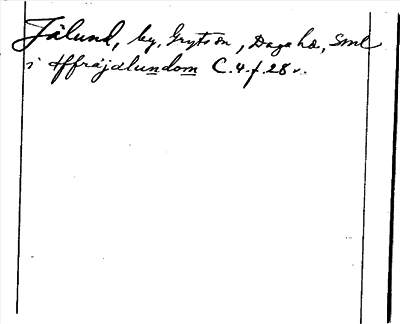 Jälund, by, Grytsön, Daga hd, Sml
i Yffräjdlundom C.4.f.28 v.